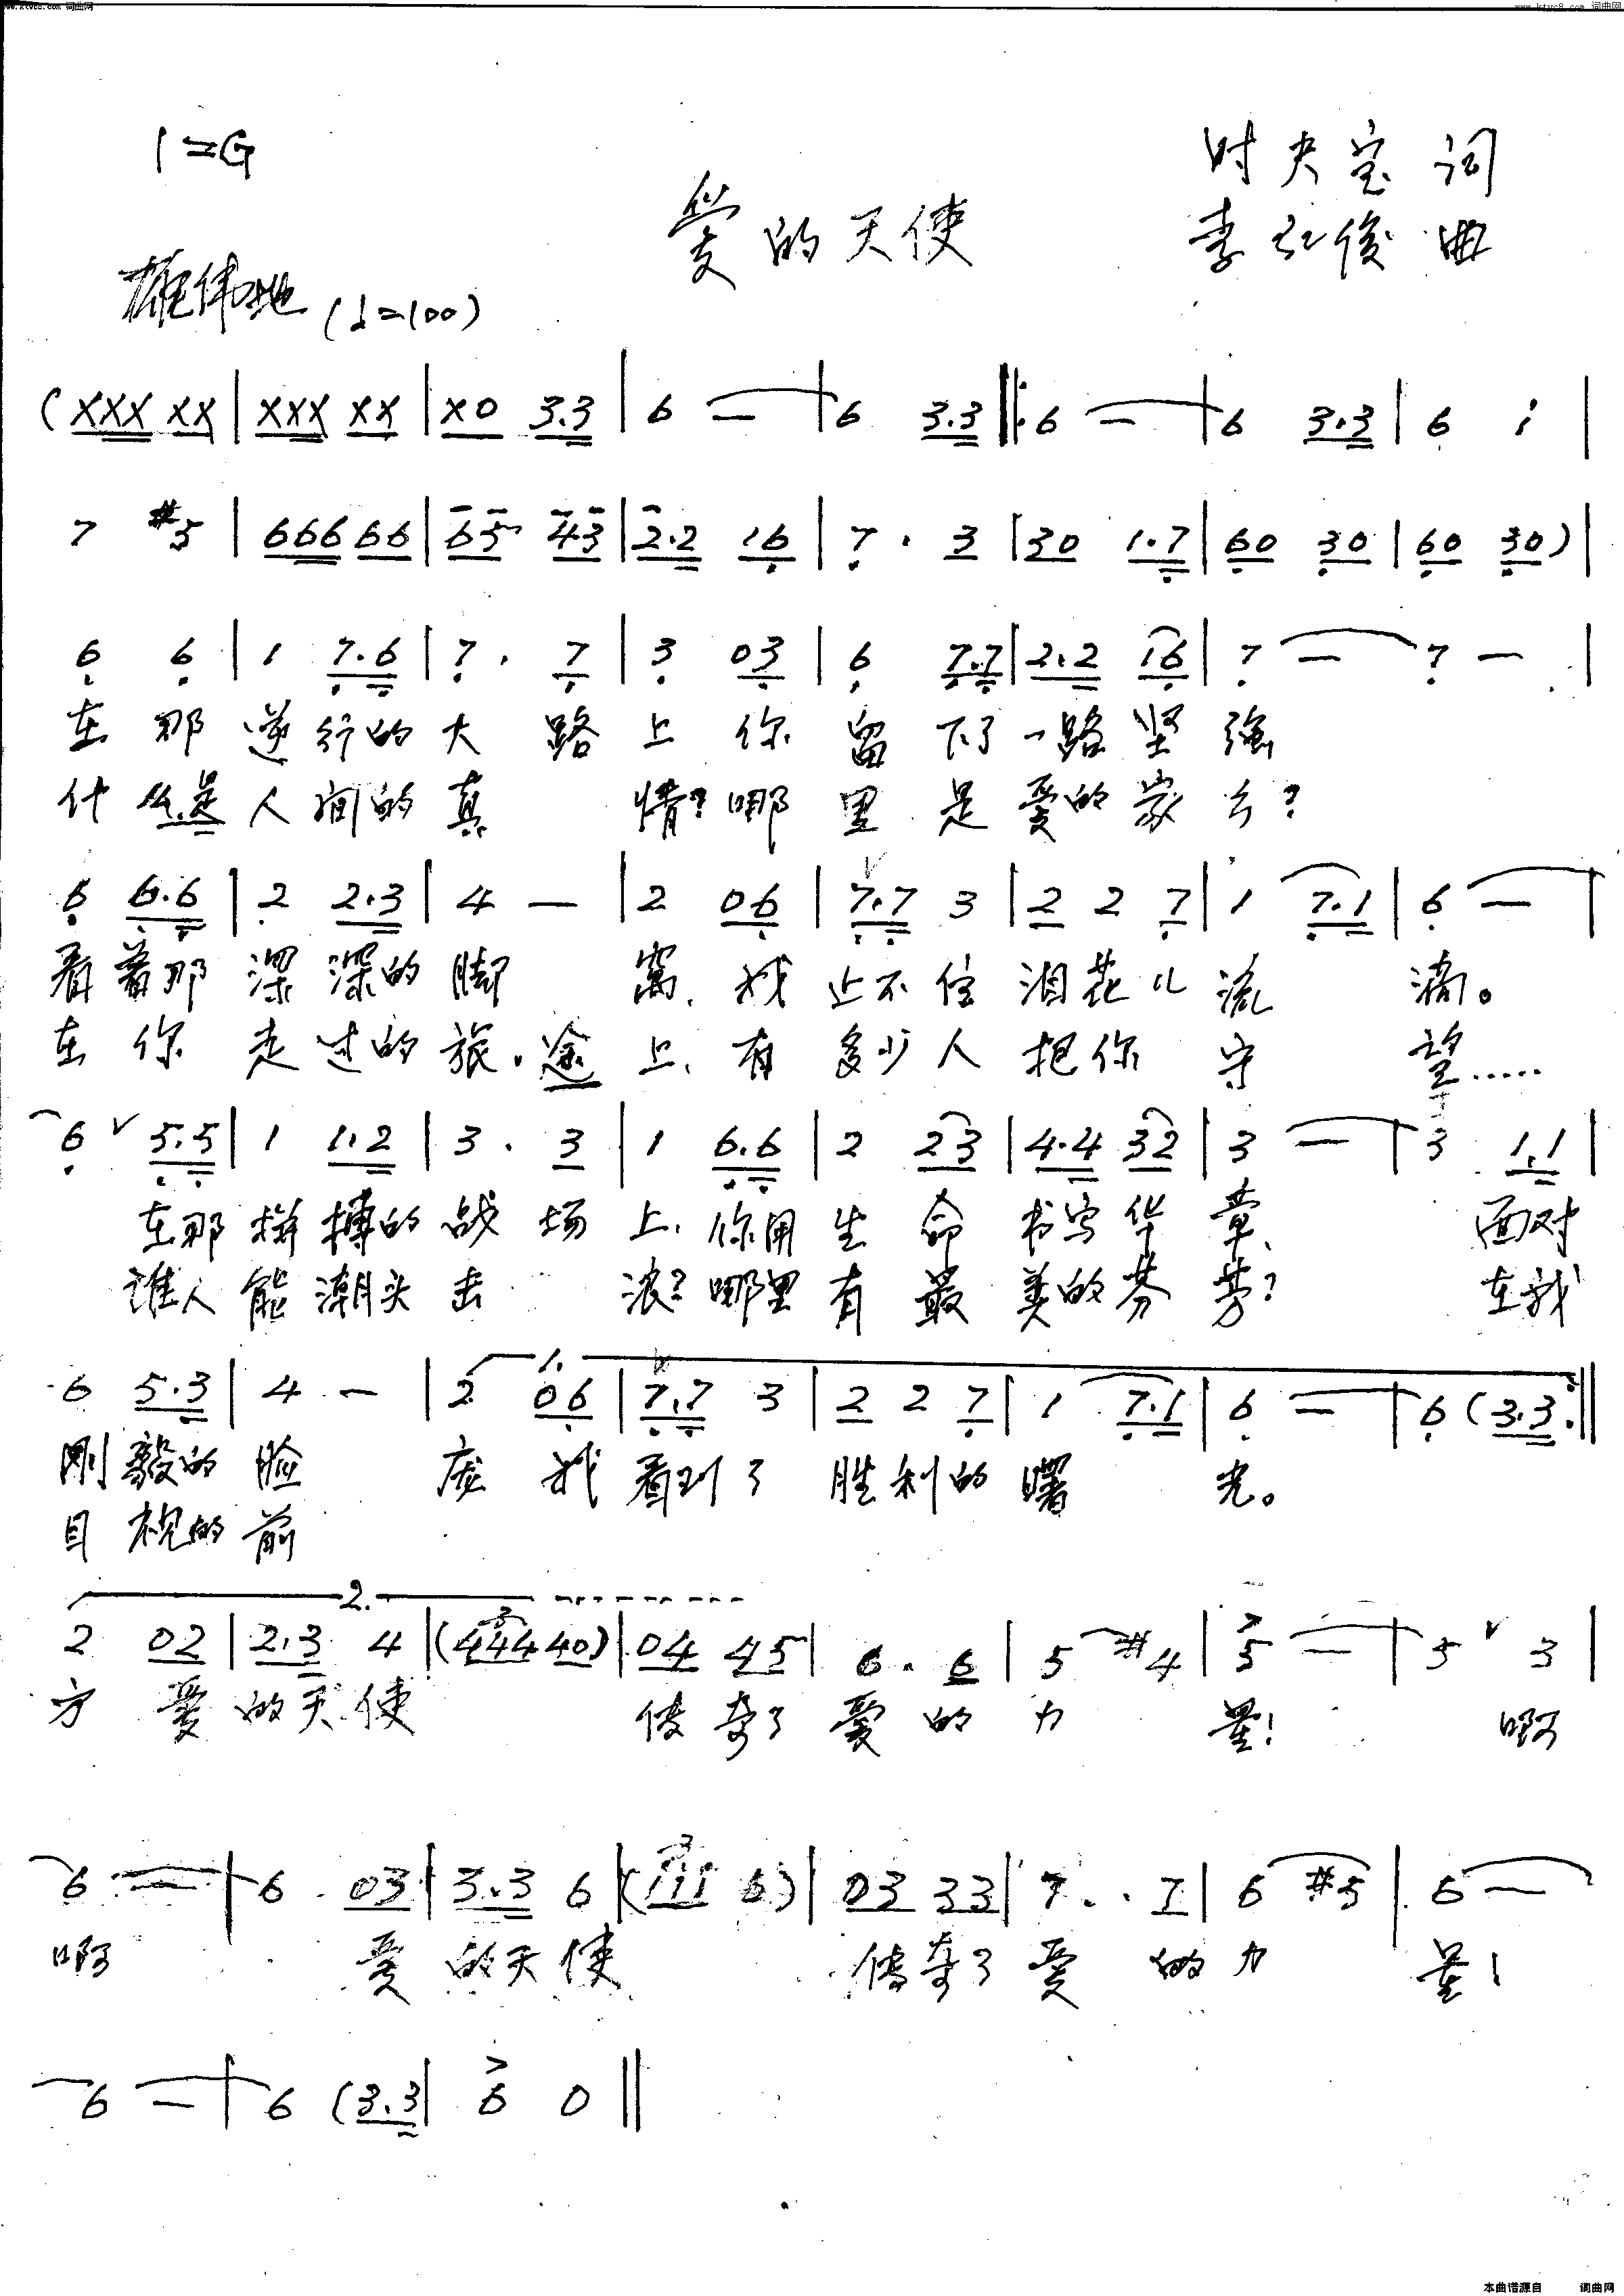 www.ktvc8.com 词曲网
www.ktvc8.com 词曲网
1=G
时央宝 词
爱的天使
李弘俊 曲
雄伟地 (♩=100)
(XXX XX | XXX XX | X0 3.3 | 6 — | 6 3.3 ‖: 6 — | 6 3.3 | 6 i |
7 #5 | 666 66 | 65 43 | 2.2 16 | 7 . 3 | 30 1.7 | 60 30 | 60 30) |
6 6 | 1 7.6 | 7 . 7 | 3 03 | 6 7.7 | 2.2 16 | 7 — | 7 — |
在那逆行的大路上你留下了一路坚强
什么是人间的真情?哪里是爱的家乡?
6 6.6 | 2 2.3 | 4 — | 2 06 | 7.7 3 | 2 2 7 | 1 7.1 | 6 — |
看着那深深的脚窝,我止不住泪花儿流淌。
在你走过的旅途上,有多少人把你守望……
6 ∨ 5.5 | 1 1.2 | 3 . 3 | 1 6.6 | 2 23 | 4.4 32 | 3 — | 3 1.1 |
在那拼搏的战场上,你用生命书写华章、面对
谁人能潮头击浪?哪里有最美的芬芳?在我
1.
6 5.3 | 4 — | 2 06 | 7.7 3 | 2 2 7 | 1 7.1 | 6 — | 6 (3.3 :‖
刚毅的脸庞我看到了胜利的曙光。
目视的前
2.
2 02 | 2.3 4 | (444 40) | 04 45 | 6 . 6 | 5 #4 | 5 — | 5 ∨ 3 |
方爱的天使传奇了爱的力量!啊
6 — | 6 03 | 3.3 6 | (iii 6) | 03 33 | 7 . . 7 | 6 #5 | 6 — |
啊爱的天使传奇了爱的力量!
6 — | 6 (3.3 | 6 0 ‖
本曲谱源自 词曲网